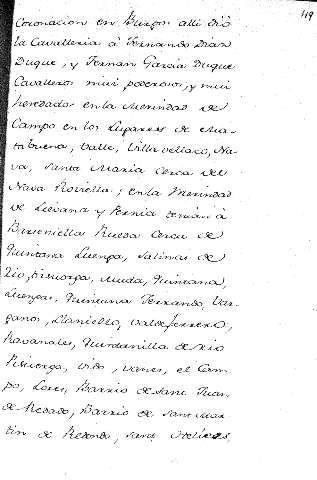 119
Coronacion en Burgos alli dió
la Cavalleria á Fernando Diaz
Duque, y Fernan Garcia Duque
Cavalleros mui poderosos, y mui
heredados en la Merindad de
Campo en los Lugares de Ma-
tabuena, Valle, Villavellaco, Na-
va, Santa Maria Cerca de
Nava Roviella; en la Merindad
de Lievana y Pernia tenian á
Barceniella Rueda Cerca de
Quintana Luenga, Salinas de
Rio, Pisuerga, Muda, Quintana,
Luengas, Quintana Fernando, Var-
ganos, Llaniello, Valdeferrero,
Ravanales, Quintanilla de rio
Pisuerga, Vido, Vanes, el Cam-
po, Lores, Barrio de Sant Juan
de Redondo, Barrio de Sant Mar-
tin de Redondo, Sant